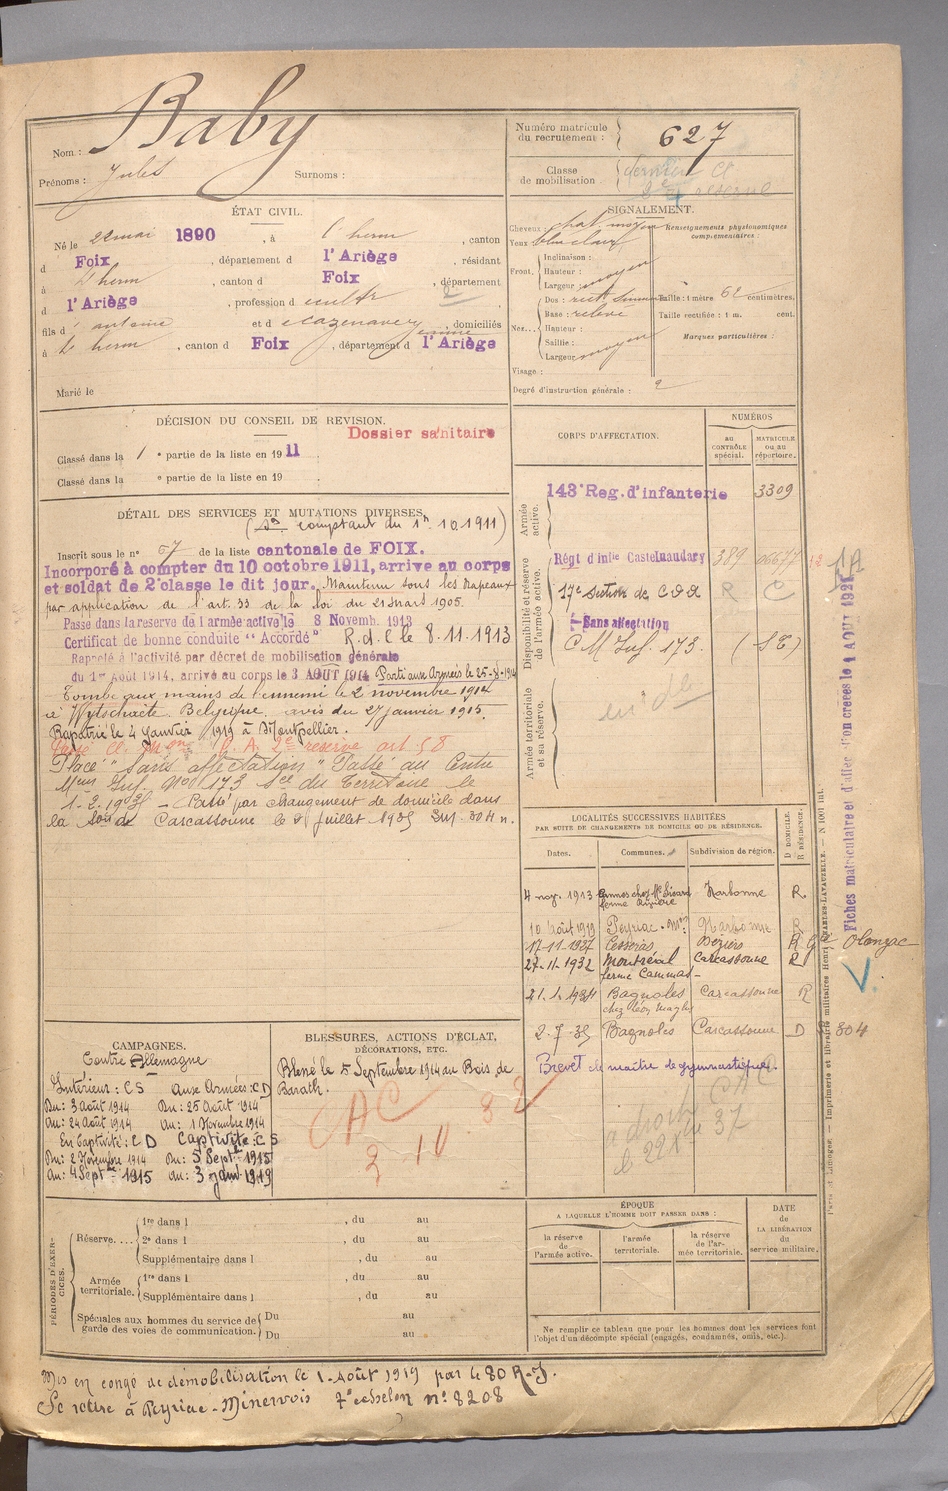 Nom : Baby
Prénoms : Jules Surnoms :
Numéro matricule du recrutement : 627
Classe de mobilisation : dernière Cl
2e réserve
ÉTAT CIVIL.
Né le 22 mai 1890, à l'herm, canton
d Foix, département d l'Ariège, résidant
à l'herm, canton d Foix, département
d l'Ariège, profession d cultr
fils d' antoine et d Cazenave, domiciliés
à l'herm, canton d Foix, département d l'Ariège
Marié le
SIGNALEMENT.
Cheveux : chat. moyen
Yeux bleu clair
Front. Inclinaison :
Hauteur :
Largeur : moyen
Nez... Dos : rect.
Base : relevé
Hauteur :
Saillie :
Largeur moyen
Visage :
Degré d'instruction générale : 2
Renseignements physionomiques complémentaires :
Taille : 1 mètre 62 centimètres.
Taille rectifiée : 1 m. cent.
Marques particulières :
DÉCISION DU CONSEIL DE REVISION.
Dossier sanitaire
Classé dans la 1 e partie de la liste en 1911
Classé dans la e partie de la liste en 19
DÉTAIL DES SERVICES ET MUTATIONS DIVERSES.
(Sce comptant du 1er 10.1911)
Inscrit sous le n° 67 de la liste cantonale de FOIX.
Incorporé à compter du 10 octobre 1911, arrive au corps
et soldat de 2e classe le dit jour. Maintenu sous les drapeaux
par application de l'art. 33 de la loi du 21 mars 1905.
Passe dans la reserve de l armée active le 8 Novemb. 1913
Certificat de bonne conduite "Accordé" R.d.C le 8.11.1913
Rappelé à l'activité par décret de mobilisation générale
du 1er Août 1914, arrivé au corps le 3 AOUT 1914 Parti aux Armées le 25-8-1914
Tombé aux mains de l'ennemi le 2 novembre 1914
à Wytschaete. Belgique avis du 27 janvier 1915.
Rapatrié le 4 janvier 1919 à Montpellier.
Passé Cl. P. A. 2e reserve art 58
Placé "Sans affectation" Passé au Centre
Inf. No 173 Sce du Territoire le
1-2.1935 – Passé par changement de domicile dans
la Son de Carcassonne le 2 Juillet 1935 304 n.
CORPS D'AFFECTATION.
NUMÉROS
AU CONTRÔLE spécial.
MATRICULE ou au répertoire.
Armée active.
143e Reg. d'infanterie 3309
Disponibilité et réserve de l'armée active.
Régt d'infie Castelnaudary 389 06677
17e Section de COA R C
Sans affectation
C M Inf. 173. (SE)
Armée territoriale et sa réserve.
LOCALITÉS SUCCESSIVES HABITÉES
PAR SUITE DE CHANGEMENTS DE DOMICILE OU DE RÉSIDENCE.
Dates. Communes. Subdivision de région. D DOMICILE. R RÉSIDENCE.
4 nov. 1913 Narbonne R
10 Août 1919 Peyriac-Mois Narbonne R
17-11-1927 Cesseras Béziers R Olonzac
27-11-1932 Montréal Carcassonne R
ferme Cammas-
21.1.1934 Bagnoles Carcassonne R
chez Léon
2-7-35 Bagnoles Carcassonne D 804
Brevet de maître de gymnastique.
à droit CAC
le 22 37
Fiches matriculaire et d'affectation créées le AOUT 192
Paris et Limoges. — Imprimerie et librairie militaires Henri CHARLES-LAVAUZELLE. — N 1001 int.
CAMPAGNES.
Contre Allemagne
Intérieur : CS Aux Armées : CD
Du : 3 Août 1914 Du : 25 Août 1914
Au : 24 Août 1914 Au : 1 Novembre 1914
En Captivité : CD Captivité : CS
Du : 2 Novembre 1914 Du : 5 Septe 1915
Au : 4 Septe 1915 Au : 3 Janv 1919
BLESSURES, ACTIONS D'ÉCLAT,
DÉCORATIONS, ETC.
Blessé le 5 Septembre 1914 au Bois de
Barath.
CAC
2 10 32
PÉRIODES D'EXERCICES.
Réserve.... 1re dans l , du au
2e dans l , du au
Supplémentaire dans l , du au
Armée territoriale. 1re dans l , du au
Supplémentaire dans l , du au
Spéciales aux hommes du service de garde des voies de communication. Du au
Du au
ÉPOQUE
A LAQUELLE L'HOMME DOIT PASSER DANS :
la réserve de l'armée active.
l'armée territoriale.
la réserve de l'armée territoriale.
DATE de LA LIBÉRATION du service militaire.
Ne remplir ce tableau que pour les hommes dont les services font
l'objet d'un décompte spécial (engagés, condamnés, omis, etc.).
Mis en congé de démobilisation le 1 Août 1919 par le 80 R.I.
Se retire à Peyriac-Minervois 7e echelon n° 8208